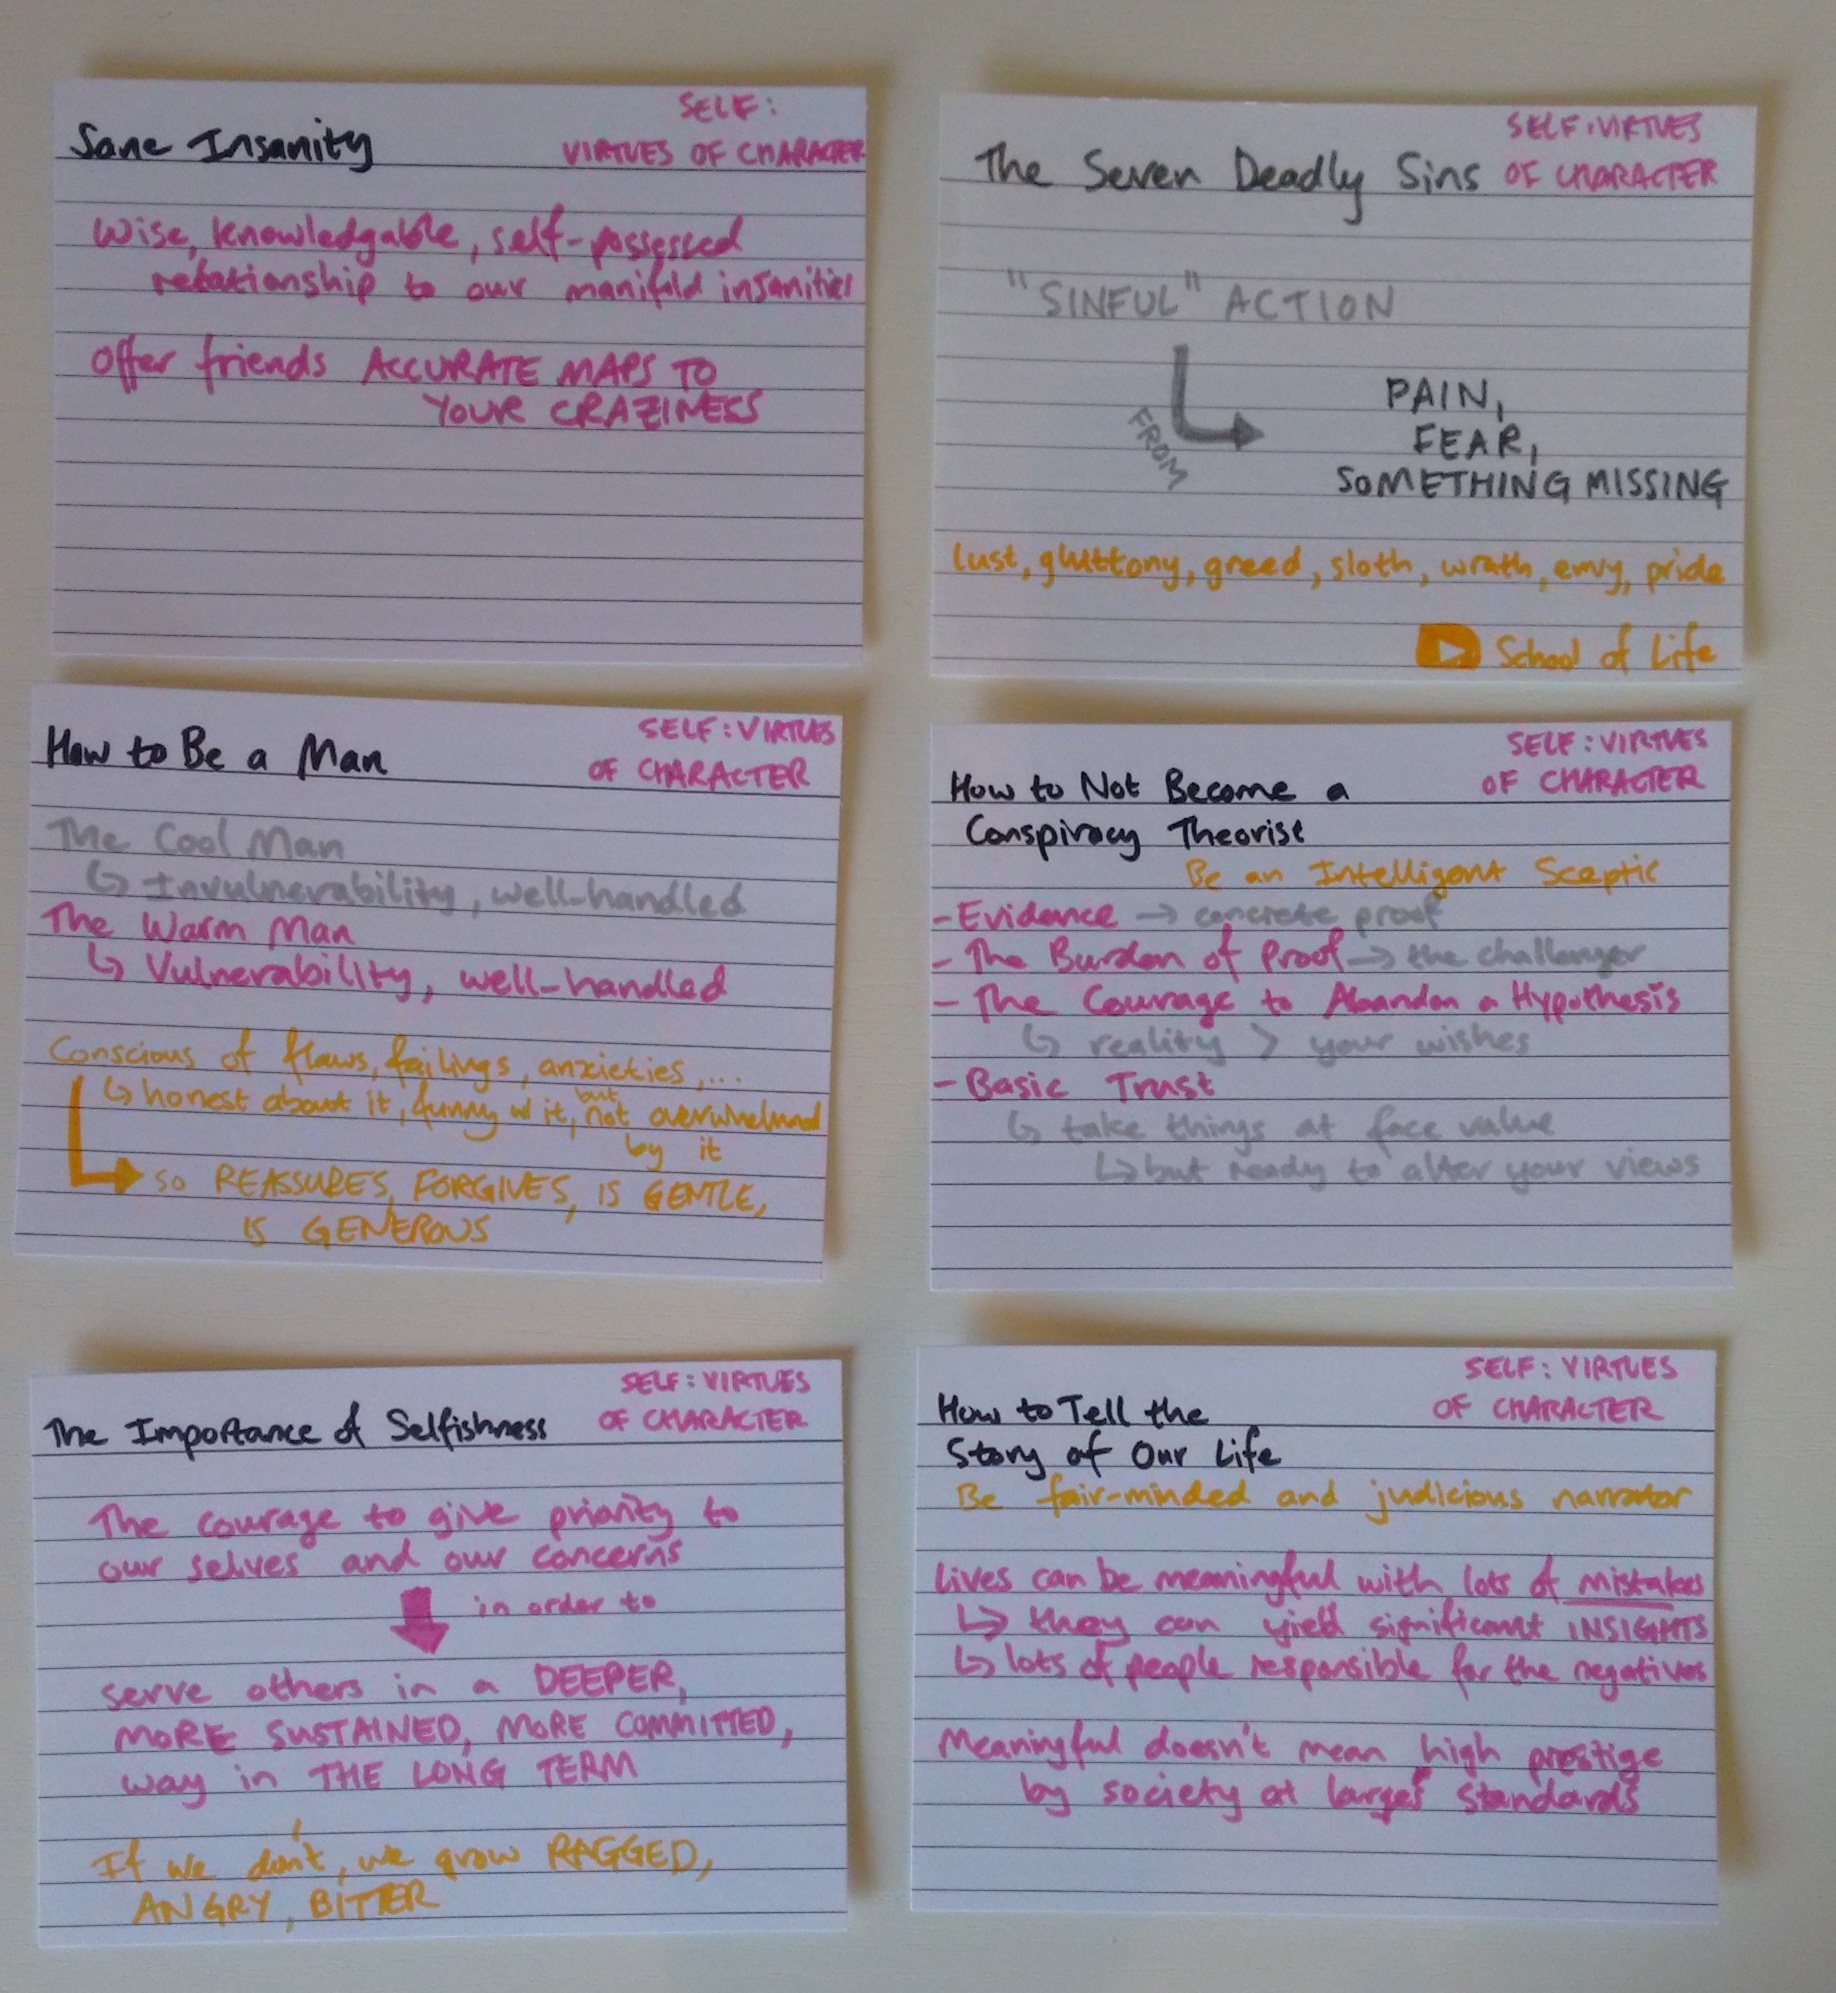 Sane Insanity
SELF:
VIRTUES OF CHARACTER
Wise, knowledgable, self-possessed
relationship to our manifold insanities
Offer friends ACCURATE MAPS TO
YOUR CRAZINESS
The Seven Deadly Sins
SELF: VIRTUES
OF CHARACTER
"SINFUL" ACTION
FROM
PAIN,
FEAR,
SOMETHING MISSING
lust, gluttony, greed, sloth, wrath, envy, pride
School of Life
How to Be a Man
SELF: VIRTUES
OF CHARACTER
The Cool Man
↳ Invulnerability, well-handled
The Warm Man
↳ Vulnerability, well-handled
Conscious of flaws, failings, anxieties, ...
↳ honest about it, funny w/ it, but not overwhelmed
by it
so REASSURES, FORGIVES, IS GENTLE,
IS GENEROUS
How to Not Become a
Conspiracy Theorist
SELF: VIRTUES
OF CHARACTER
Be an Intelligent Sceptic
- Evidence → concrete proof
- The Burden of Proof → the challenger
- The Courage to Abandon a Hypothesis
↳ reality > your wishes
- Basic Trust
↳ take things at face value
↳ but ready to alter your views
The Importance of Selfishness
SELF: VIRTUES
OF CHARACTER
The courage to give priority to
our selves and our concerns
in order to
serve others in a DEEPER,
MORE SUSTAINED, MORE COMMITTED,
way in THE LONG TERM
If we don't, we grow RAGGED,
ANGRY, BITTER
How to Tell the
Story of Our Life
SELF: VIRTUES
OF CHARACTER
Be fair-minded and judicious narrator
Lives can be meaningful with lots of mistakes
↳ they can yield significant INSIGHTS
↳ lots of people responsible for the negatives
Meaningful doesn't mean high prestige
by society at large's standards